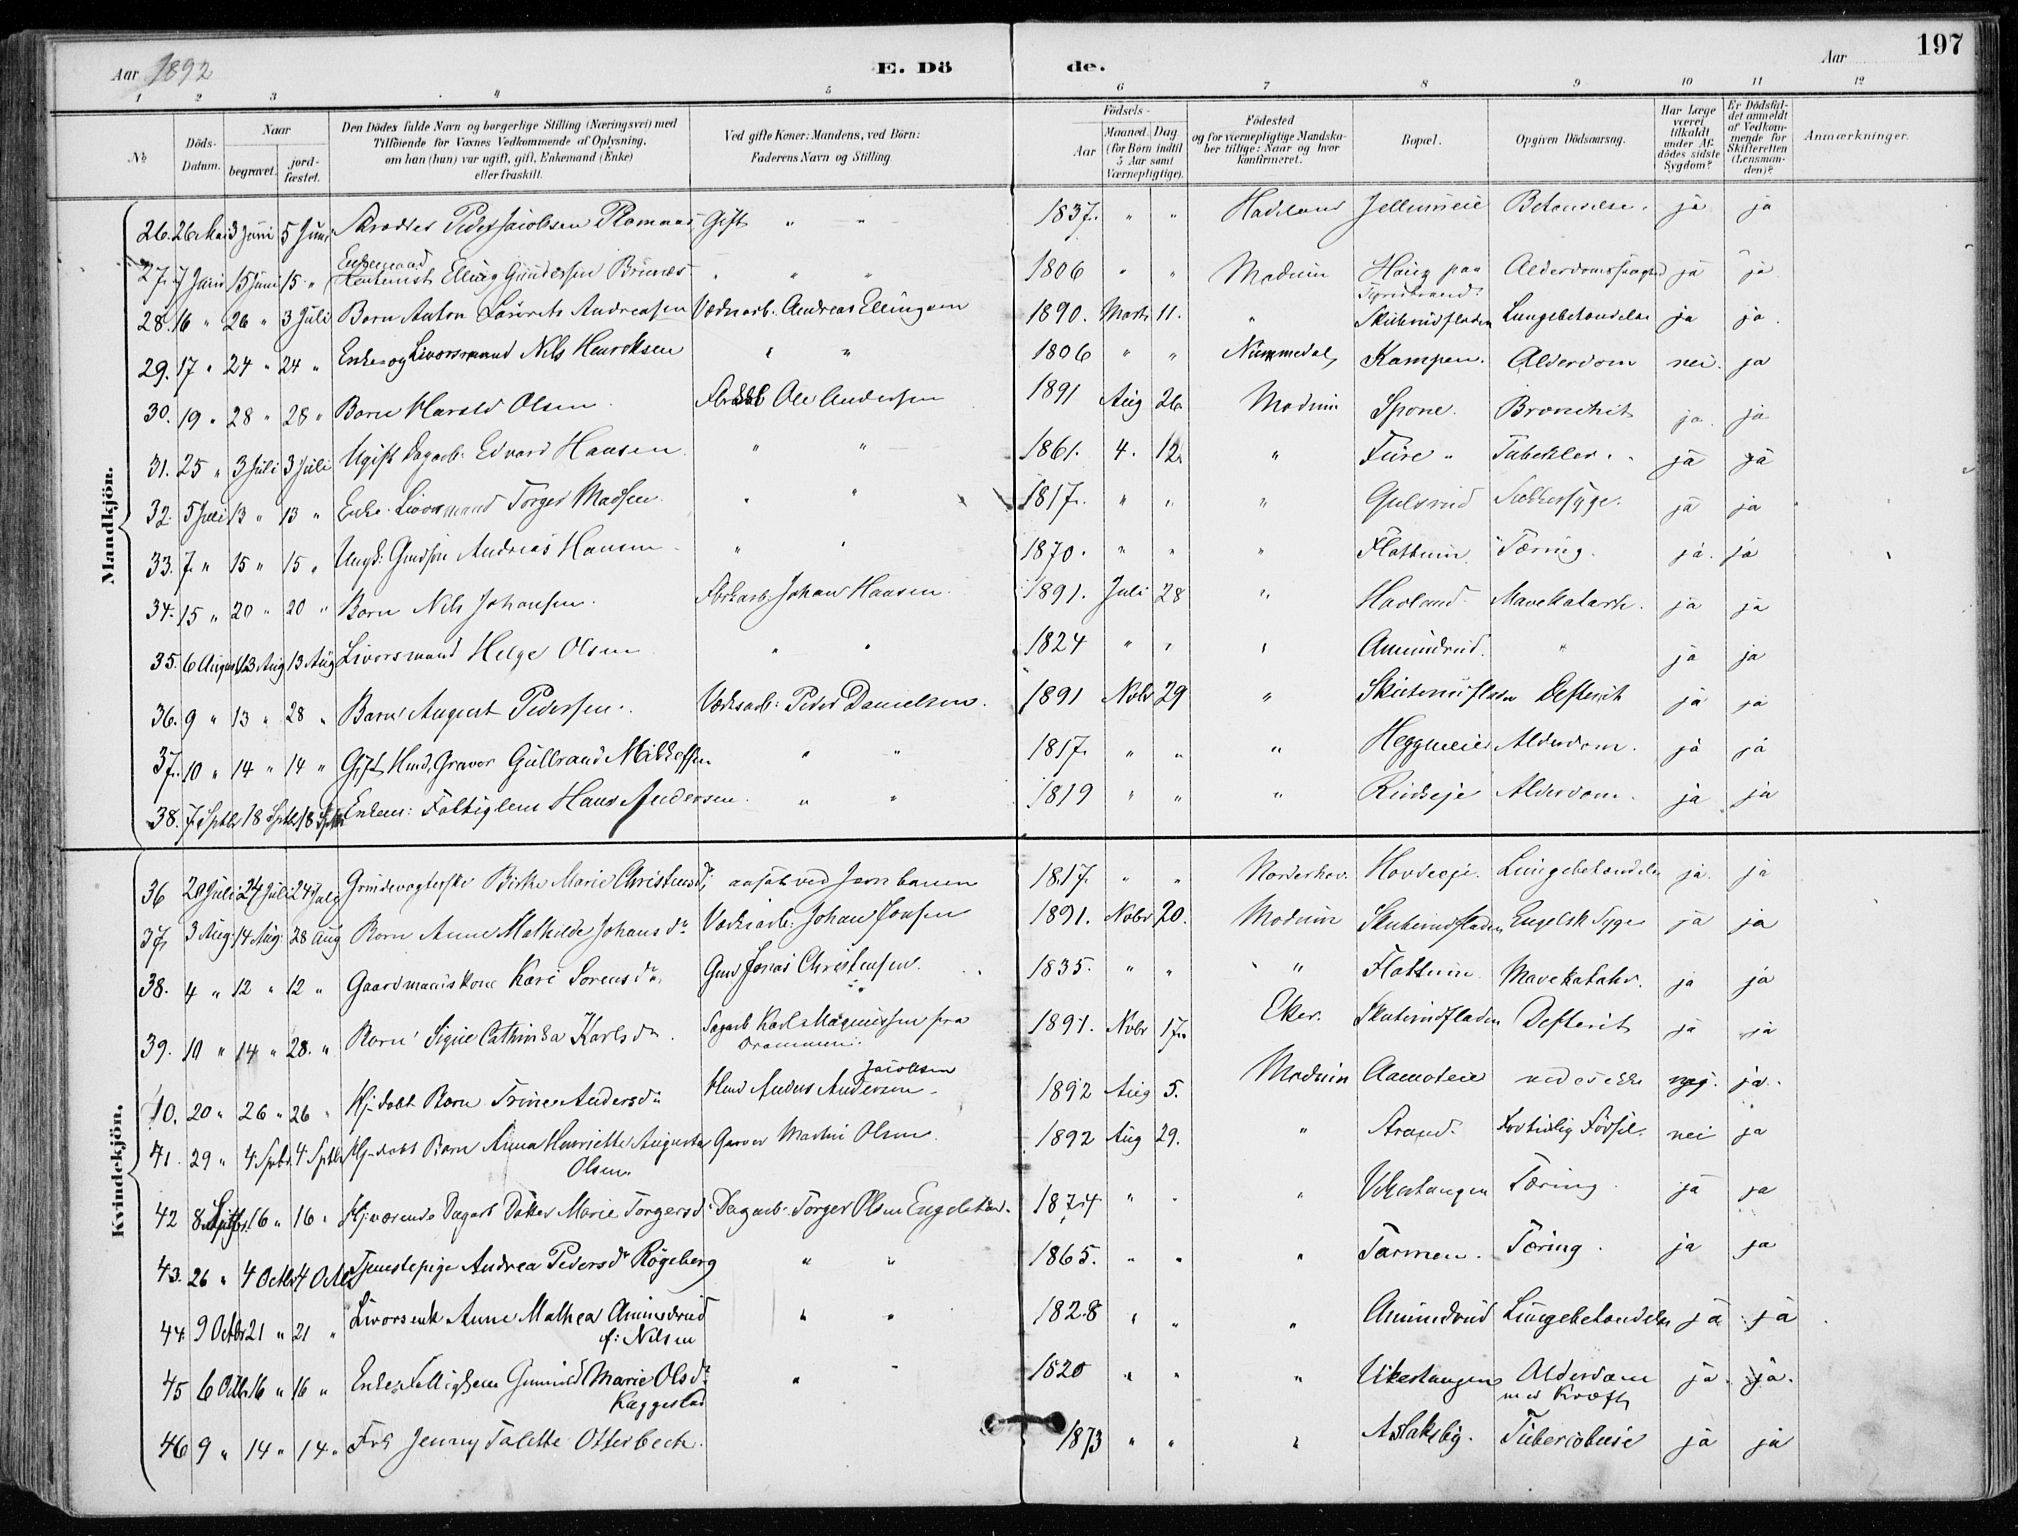 197
Aar 1892
E. Döde.
Aar
1 2 3 4 5 6 7 8 9 10 11 12
№
Döds-Datum.
Naar
begravet.
jord-fæstet.
Den Dödes fulde Navn og borgerlige Stilling (Næringsvei) med
Tilföiende for Voxnes Vedkommende af Oplysning,
om han (hun) var ugift, gift, Enkemand (Enke)
eller fraskilt.
Ved gifte Koner: Mandens, ved Börn:
Faderens Navn og Stilling.
Födsels-
Aar
Maaned. Dag
(for Börn indtil
5 Aar samt
Værnepligtige).
Födested
og for værnepligtige Mandska-
ber tillige: Naar og hvor
konfirmeret.
Bopæl.
Opgiven Dödsaarsag.
Har Læge
været
tilkaldt
under Af-
dödes sidste
Sygdom?
Er Dödsfal-
det anmeldt
af Vedkom-
mende for
Skifteretten
(Lensman-
den)?
Anmærkninger.
Mandkjön.
26. 26 Mai 3 Juni 5 Juni Peder Jacobsen Gift " " 1837. " " Hadeland Betændelse. ja ja
27. 7 Juni 15 Juni 15 " Enkemand Elling Gundersen " " " 1806 " " Modum Haug paa Tyristrand Alderdomssvaghed ja ja
28. 16 " 26 " 3 Juli Barn Anton Laurits Andreasen Andreas Ellingsen 1890. Marts 11. " Skuterudfladen Lungebetændelse ja ja
29. 17 " 24 " 24 " Enke og Livorsmand Nils Henriksen " " 1806 " " Nummedal Kampen. Alderdom nei ja
30. 19 " 28 " 28 " Barn Harald Olsen Ole Andersen 1891 Aug 26 Modum Spone. Bronchit ja ja
31. 25 " 3 Juli 3 Juli Ugift Dagarb. Edvard Hansen " " 1861. 4. 12. " Fure Tuberkler ja ja
32. 5 Juli 13 " 13 " Enke. Livorsmand Torger Madsen " " 1817. " " " Gulsrud Sukkersyge. ja ja
33. 7 " 15 " 15 " Ungk: Andreas Hansen " " 1870. " " " Flattum Tæring. ja ja
34. 15 " 20 " 20 " Barn Nils Johansen. Johan Hansen. 1891. Juli 28 " Hovland Mavekatarh. ja ja
35. 6 August 13 Aug 13 Aug Livorsmand Helge Olsen " " 1824 " " " Amundrud. " ja ja
36. 9 " 13 " 28 " Barn August Pedersen. Værksarb: Peder Danielsen. 1891 Novbr 29 " Skuterudfladen Defterit ja ja
37. 10 " 14 " 14 " Gift Gulbrand " " 1817. " " " Heggmeier Alderdom. ja ja
38. 7 Sptbr 18 Sptbr 18 Sptbr Enkem: Fattiglem Hans Andersen " " 1819 " " " Alderdom. ja ja
Kvindekjön.
36 20 Juli 24 Juli 24 July Grindevogterske Birthe Marie Christensd. ansat ved Jernbanen 1817. " " Norderhov. Hovdeeje. Lungebetændelse ja ja
37 3 Aug: 14 Aug: 28 Aug Barn Anne Mathilde Johansdr Værksarb: Johan Jonsen 1891. Novbr 20. Modum Skuterudfladen Engelsk Syge ja ja
38. 4 " 12 " 12 " Gaardmandskone Kari Sorensdr Gmd Jonas Christensen. 1835. " " " Flattum Mavekatahr. ja ja
39. 10 " 14 " 28. " Barn Signe Cathinka Karlsdr. Karl Magnussen fra Drammen. 1891. Novbr 17. Eker. Skuterudfladen Defterit ja ja
40. 20 " 26 " 26 " Hj-døbt Barn Trine Andersdr Anders Andersen Jacobsen 1892 Aug 5. Modum Aamoteie nej. ja.
41. 29 " 4 Sptbr 4 Sptbr Hj-døbt Barn Anna Henriette Augusta Olsen Garver Martin Olsen 1892 Aug 29. " Strand. Fortidlig Födsel. nei ja
42 8 Septbr. 16 " 16 " Hj: værende Dagarb Datter Marie Torgersd: Dagarb. Torger Olsen 1874 " " " Vikestangen Tæring ja ja
43. 26 " 4 Octbr 4 Octbr Tjenestepige Andrea Pedersdr Røgeberg " " 1865. " " " Tarmen. Tæring. ja ja
44. 9 Octbr 21 " 21 " Livorsenk Anne Mathea Amundrud f: Nilsen " " 1828 " " " Amundrud Lungebetændelse ja ja
45 6 Octbr 16 " 16 " Enke Fattiglem Gunnild Marie Olsdr Kaggestad " " 1820 " " " Vikestangen Alderdom med Kræft ja. ja.
46 9 " 14 " 14 " Frk Jenny Talette Otterbech. 1873 " " " Aslaksby. Tuberculose ja ja